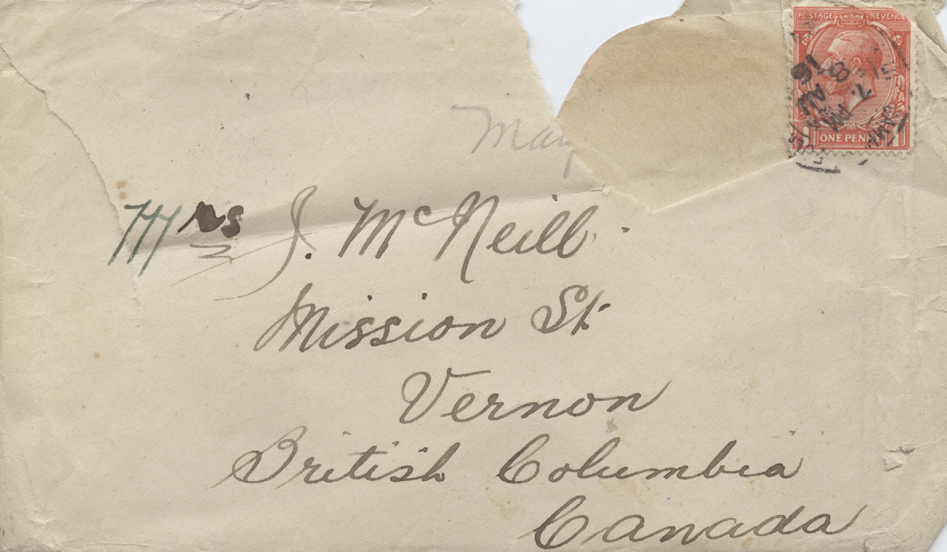 POSTAGE REVENUE
ONE PENNY
May
Mrs J. McNeill
Mission St
Vernon
British Columbia
Canada